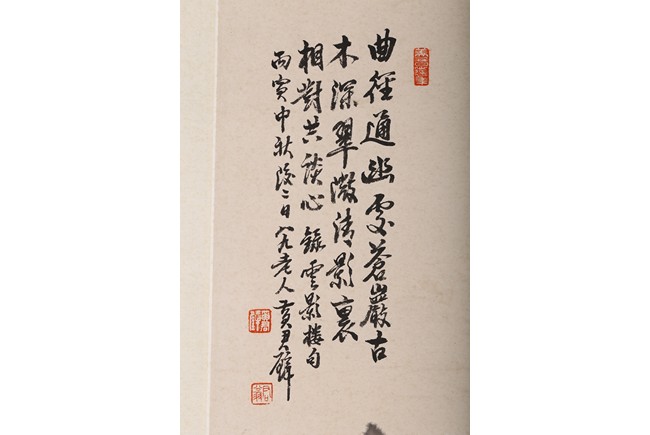 曲徑通幽處蒼巖古
木深翠微清影裏
相對共談心 錄雲影樓句
丙寅中秋後二日 八九老人黃君璧